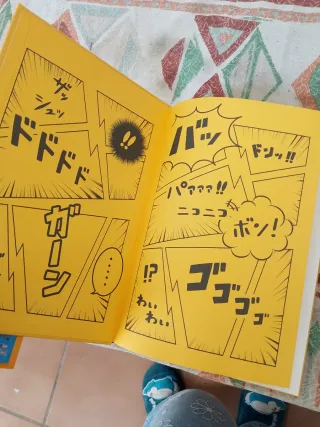 ザッ
シュッ
!!
ドドドド
ガーン
....
バッ
ドドッ!!
パァァァ!!
ニコニコ
ボン!
!?
ゴゴゴゴ
わぃ
わぃ